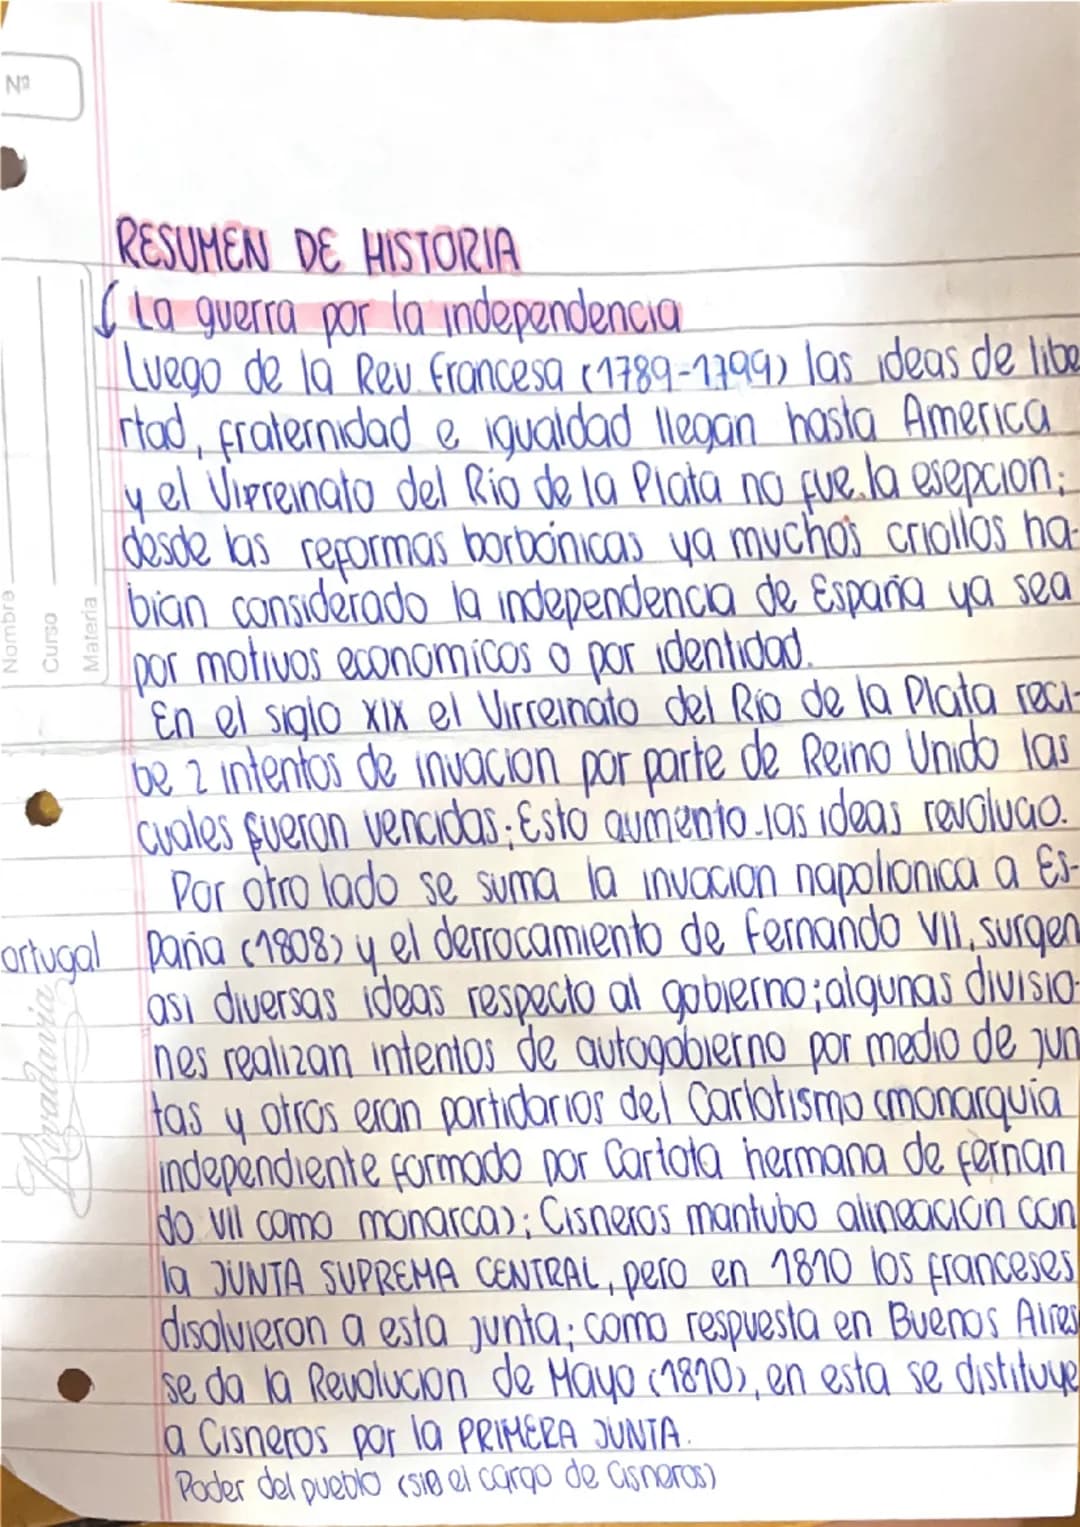 Nº
Nombre
Curso
Materia
Rivadavia
RESUMEN DE HISTORIA
La guerra por la independencia
Luego de la Rev. Francesa (1789-1799) las ideas de libe
rtad, fraternidad e igualdad llegan hasta America
y el Virreinato del Rio de la Plata no fue la esepcion;
desde las reformas borbónicas ya muchos criollos ha-
bian considerado la independencia de España ya sea
por motivos economicos o por identidad.
En el siglo XIX el Virreinato del Rio de la Plata reci-
be 2 intentos de invacion por parte de Reino Unido las
cuales fueron vencidas; Esto aumento las ideas revolucio.
Por otro lado se suma la invacion napolionica a Es-
ortugal paña (1808) y el derrocamiento de Fernando VII, surgen
asi diversas ideas respecto al gobierno; algunas divisio-
nes realizan intentos de autogobierno por medio de jun
tas y otros eran partidarios del Carlotismo (monarquia
independiente formado por Carlota hermana de fernan
do VII como monarca); Cisneros mantubo alineación con
la JUNTA SUPREMA CENTRAL, pero en 1810 los franceses
disolvieron a esta junta; como respuesta en Buenos Aires
se da la Revolucion de Mayo (1810), en esta se distituye
a Cisneros por la PRIMERA JUNTA.
Poder del pueblo (sin el cargo de Cisneros)